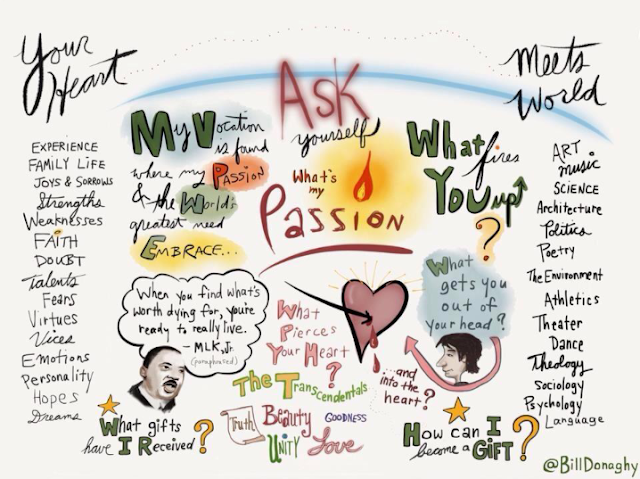 Your
Heart
Meets
World
Ask
yourself
What's
my
PASSION
EXPERIENCE
FAMILY LIFE
JOYS & SORROWS
Strengths
Weaknesses
FAITH
DOUBT
Talents
Fears
Virtues
Vices
Emotions
Personality
Hopes
Dreams
My Vocation
is found
where my PASSION
& the World's
greatest need
EMBRACE...
What fires
YOU up
?
ART
music
SCIENCE
Architecture
Politics
Poetry
The Environment
Athletics
Theater
Dance
Theology
Sociology
Psychology
Language
When you find what's
worth dying for, you're
ready to really live.
- MLK, Jr.
(paraphrased)
What
Pierces
Your Heart
?
What
gets you
out of
your head?
...and
into the
heart?
The Transcendentals
Truth
Beauty
GOODNESS
UNITY
Love
What gifts
have I Received?
How can I
become a GIFT?
@BillDonaghy